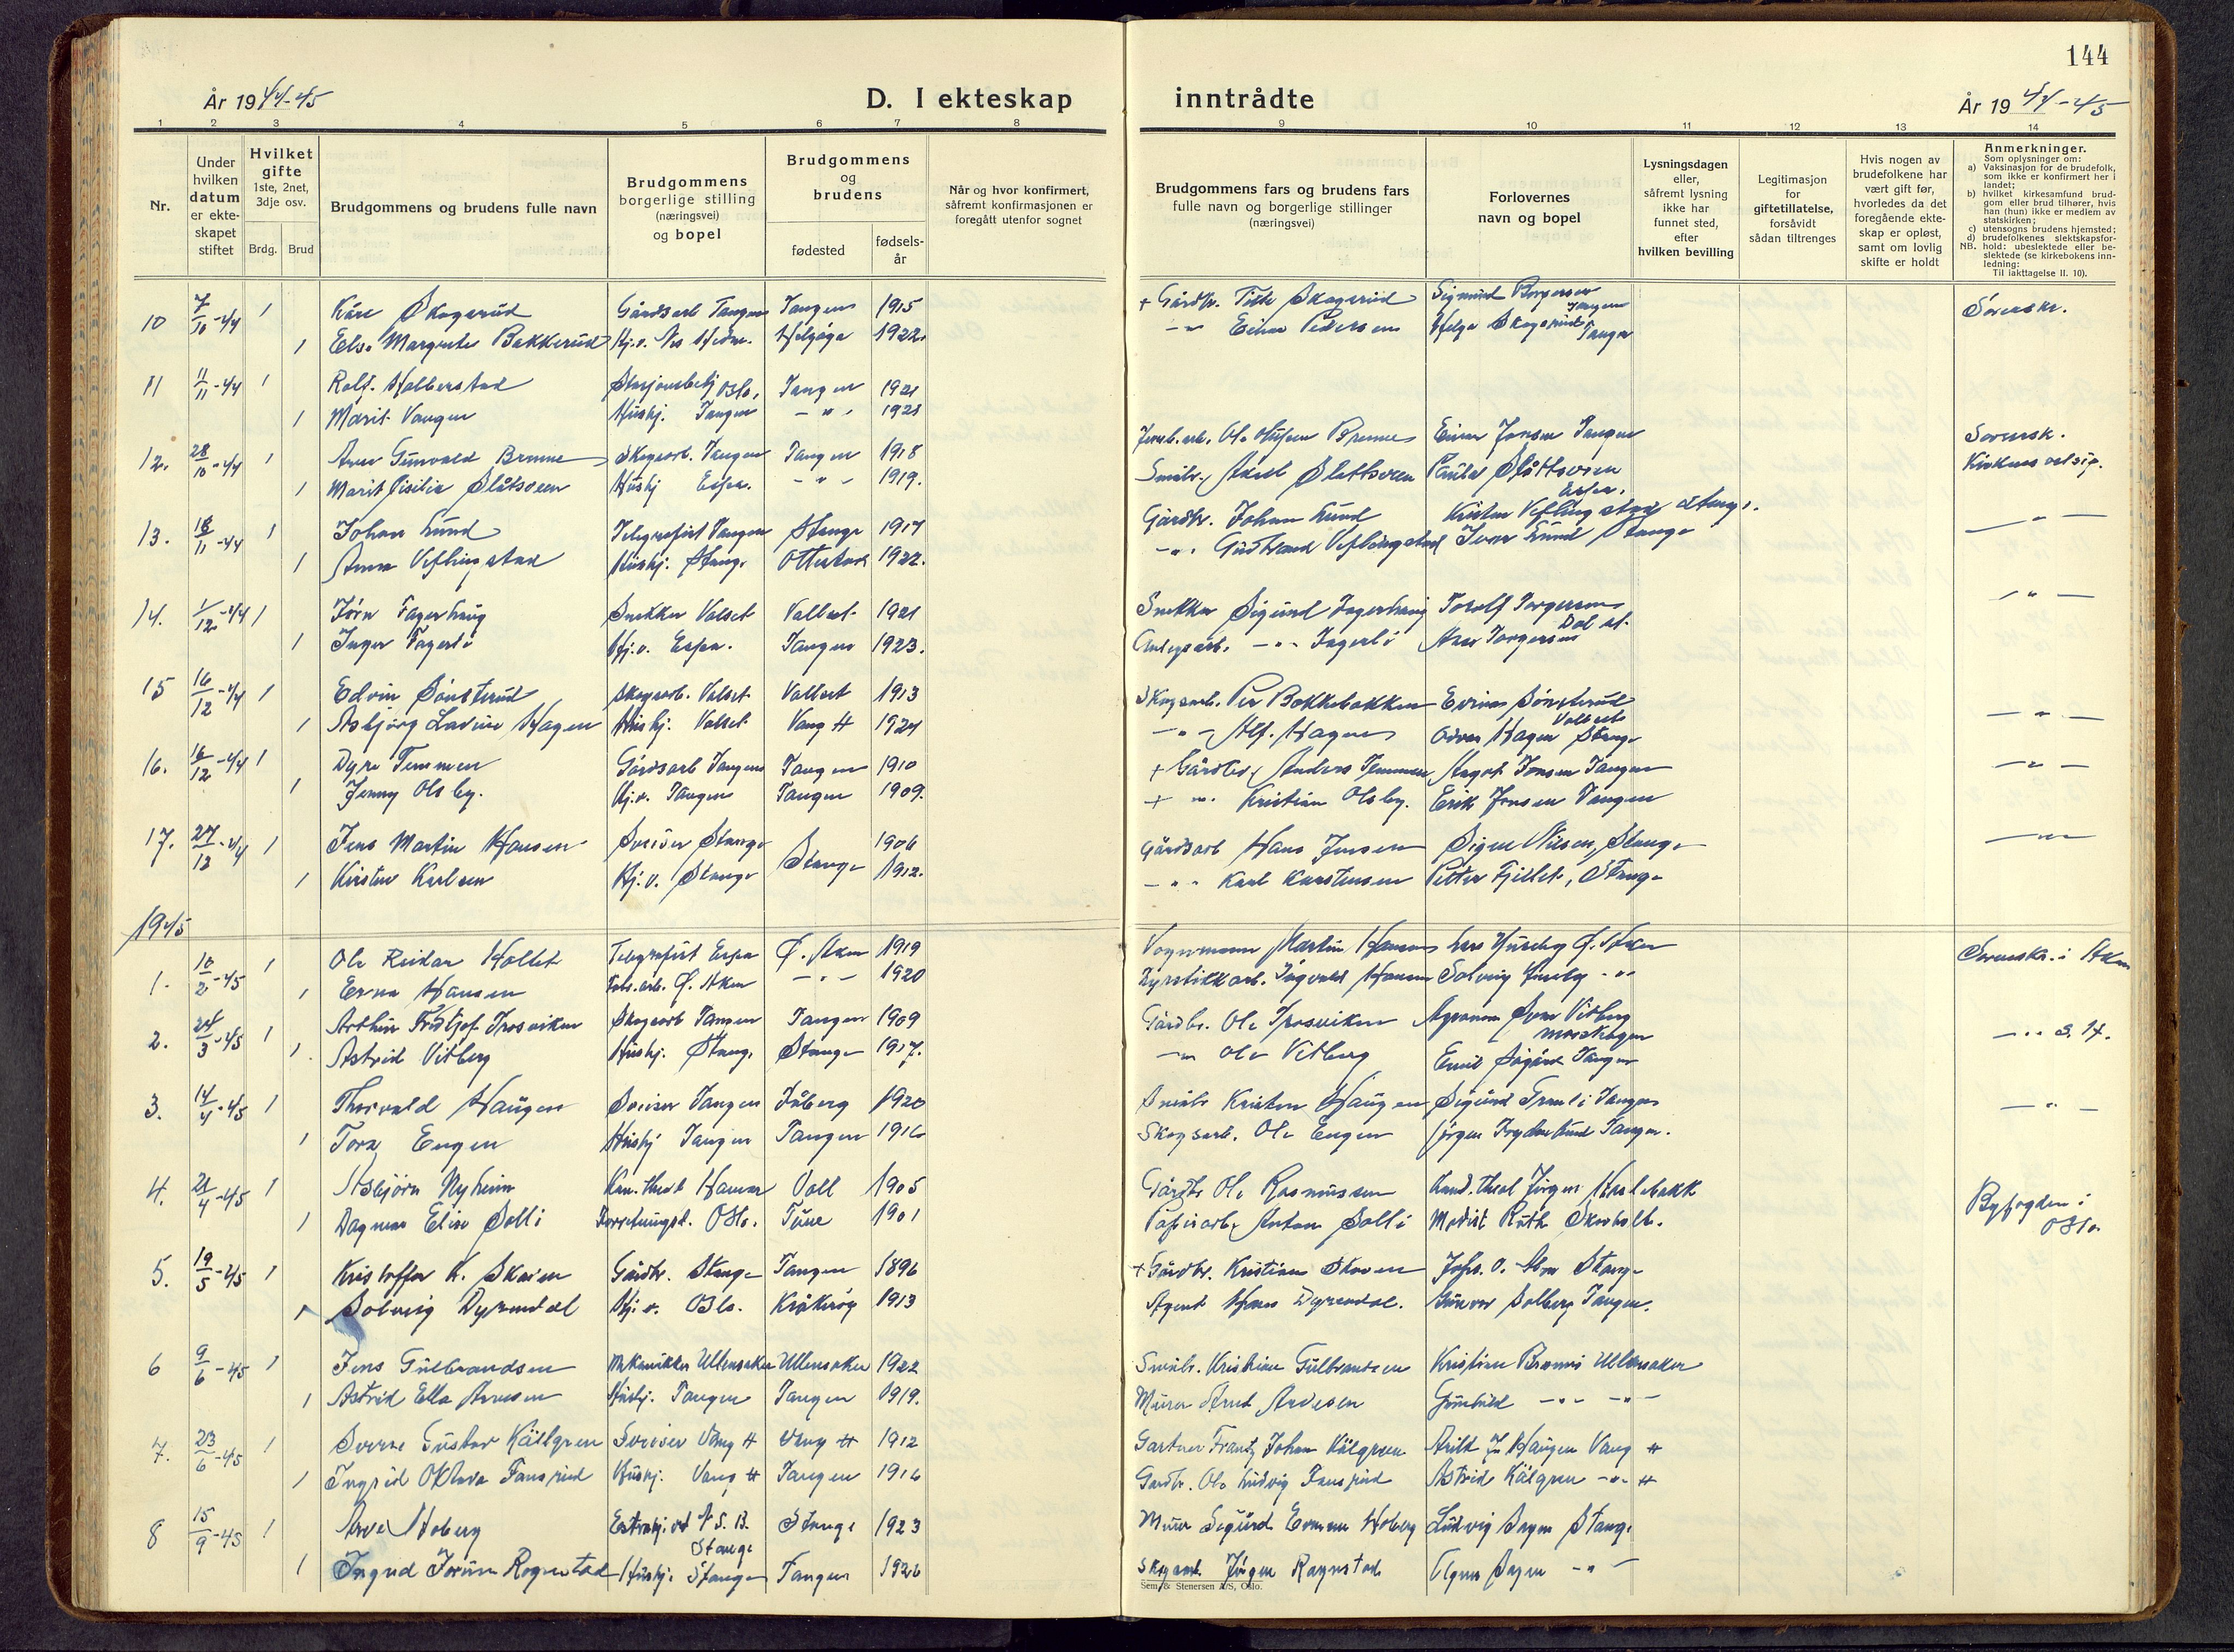 144
År 1944-45
D. I ekteskap inntrådte
År 1944-45
1 2 3 4 5 6 7 8 9 10 11 12 13 14
Nr.
Under hvilken datum er ekteskapet stiftet
Hvilket gifte
1ste, 2net, 3dje osv.
Brdg. Brud
Brudgommens og brudens fulle navn
Brudgommens borgerlige stilling (næringsvei) og bopel
Brudgommens og brudens
fødested
fødselsår
Når og hvor konfirmert, såfremt konfirmasjonen er foregått utenfor sognet
Brudgommens fars og brudens fars fulle navn og borgerlige stillinger (næringsvei)
Forlovernes navn og bopel
Lysningsdagen eller, såfremt lysning ikke har funnet sted, efter hvilken bevilling
Legitimasjon for giftetillatelse, forsåvidt sådan tiltrenges
Hvis nogen av brudefolkene har vært gift før, hvorledes da det foregående ekteskap er opløst, samt om lovlig skifte er holdt
Anmerkninger.
Som oplysninger om:
a) Vaksinasjon for de brudefolk, som ikke er konfirmert her i landet;
b) hvilket kirkesamfund brudgom eller brud tilhører, hvis han (hun) ikke er medlem av statskirken;
c) utensogns brudens hjemsted;
d) brudefolkenes slektskapsforhold: ubeslektede eller beslektede (se kirkebokens innledning:
NB. Til iakttagelse II. 10).
10 7/10-44 1 Kåre Skogerud Gårdsarb Tangen Tangen 1915 + Gårdbr. Skogerud Sigmund Borgersen Tangen Sorenskr.
1 Else Margrete Bakkerud Hj.v. Helgøya 1922. -"- Einar Pedersen Helge Skogerud Tangen
11 11/11-44 1 Rolf Halberstad Oslo, Tangen 1921
1 Marit Vangen Hushj. Tangen -"- 1921
12. 28/10-44 1 Arne Gunvald Brenne Skogsarb. Tangen Tangen 1918 Jernb.arb. Ole Brenne Einar Jonsen Tangen Sorensk.
1 Marit Slåtsveen Hushj Espa. -"- 1919. Småbr. Aksel Slettsveen Paula Slåttsveen Espa. Kirkens velsig.
13. 18/11-44 1 Johan Lund Telegrafist Tangen Stange 1917 Gårdbr. Johan Lund Kristen Veflingstad Stange. -"-
1 Anna Veflingstad Hushj. Stange Ottestad 1922. -"- Gudbrand Veflingstad Ivar Lund Stange
14. 1/12-44 1 Jørn Fagerhaug Snekker Valset Vallset 1921 Snekker Sigurd Fagerhaug Torolf Torgersen -"-
1 Inger Fagerli Hj.v. Espa. Tangen 1923. Anlegsarb. -"- Fagerli Torgersen
15 16/12-44 1 Edvin Sønsterud Skogsarb. Valset Vallset 1913 Skogsarb. Per Bakkebakken Sønsterud Vallset -"-
1 Asbjørg Lavine Hagen Hushj. Valset Vang H 1924 -"- Alf. Hagen Odvar Hagen Stange
16. 16/12-44 1 Dyre Temmen Gårdsarb Tangen Tangen 1910 + Gårdbr. Anders Temmen Aagot Jonsen Tangen -"-
1 Jenny Olsby. Hj.v. Tangen Tangen 1909. + -"- Kristian Olsby. Erik Jonsen Tangen
17. 27/12-44 1 Jens Martin Hansen Sveiser Stange Stange 1906 Gårdsarb Hans Jensen Signe Nilsen, Stange -"-
1 Kirsten Karlsen Hj.v. Stange 1912. -"- Karl Karstensen Petter Fjellet, Stange
1945
1. 10/2-45 1 Ole Reidar Hollet Telegrafist Espa Ø. Aker 1919 Vognmann Martin Hansen Lars Huseby Ø. Aker Sorenskr. i Aker
1 Erna Hansen Fab. arb. Ø. Aker -"- 1920 Ingvald Hansen Solveig Huseby -"-
2. 24/3-45 1 Arthur Fridtjof Trosviken Skogsarb Tangen Tangen 1909 Gårdbr. Ole Trosviken Agronom Vitberg -"-
1. Astrid Vitberg Hushj. Stange Stange 1917. -"- Ole Vitberg Emil Tangen
3. 14/4-45 1 Thorvald Haugen Sveiser Tangen Fåberg 1920 Småbr Kristen Haugen Sigurd Tangen -"-
1 Tora Engen Hushj Tangen Tangen 1916 Skogsarb. Ole Engen Jørgen Frydenlund Tangen.
4. 21/4-45 1 Asbjørn Nyheim Kan. theol Hamar Voll 1905 Gårdbr Ole Rasmussen Kand. theol Jørgen Byfogden i Oslo
1 Dagmar Elise Solli Oslo. Tune 1901 Papirarb. Anton Solli Modist Ruth Skovholt.
5. 19/5-45 1 Kristoffer K. Skaven Gårdbr. Stange Tangen 1896 + Gårdbr. Kristian Skaven Johs. O. Moe Stange
1 Solveig Dyrendal Hj.v. Oslo. Kråkerøy 1913 Agent Hans Dyrendal. Gunvor Solberg Tangen.
6 9/6-45 1 Jens Gulbrandsen Mekaniker Ullensaker Ullensaker 1922 Småbr. Kristian Gulbrandsen Kristian Ullensaker
1 Astrid Ella Arnesen Hushj. Tangen Tangen 1919. Murer Arnt Gunhild -"- -"-
7. 23/6-45 1 Sverre Gustav Källgren Sveiser Vang H Vang H 1912 Gartner Frantz Johan Kälgren Arild J. Haugen Vang H
1 Ingrid Oktava Fausrud Hushj. Vang H Tangen 1916 Gardbr. Ole Ludvig Fausrud Astrid Kälgren -"- H
8 15/9-45 1 Arve Hoberg N.S.B. Stange Stange 1923 Murer Sigurd Hoberg Ludvig Stange
1 Ingrid Jorunn Rognstad Hushj. Stange Tangen 1926 Skogsarb. Jørgen Rognstad -"-
Sem & Stenersen A/S, Oslo.